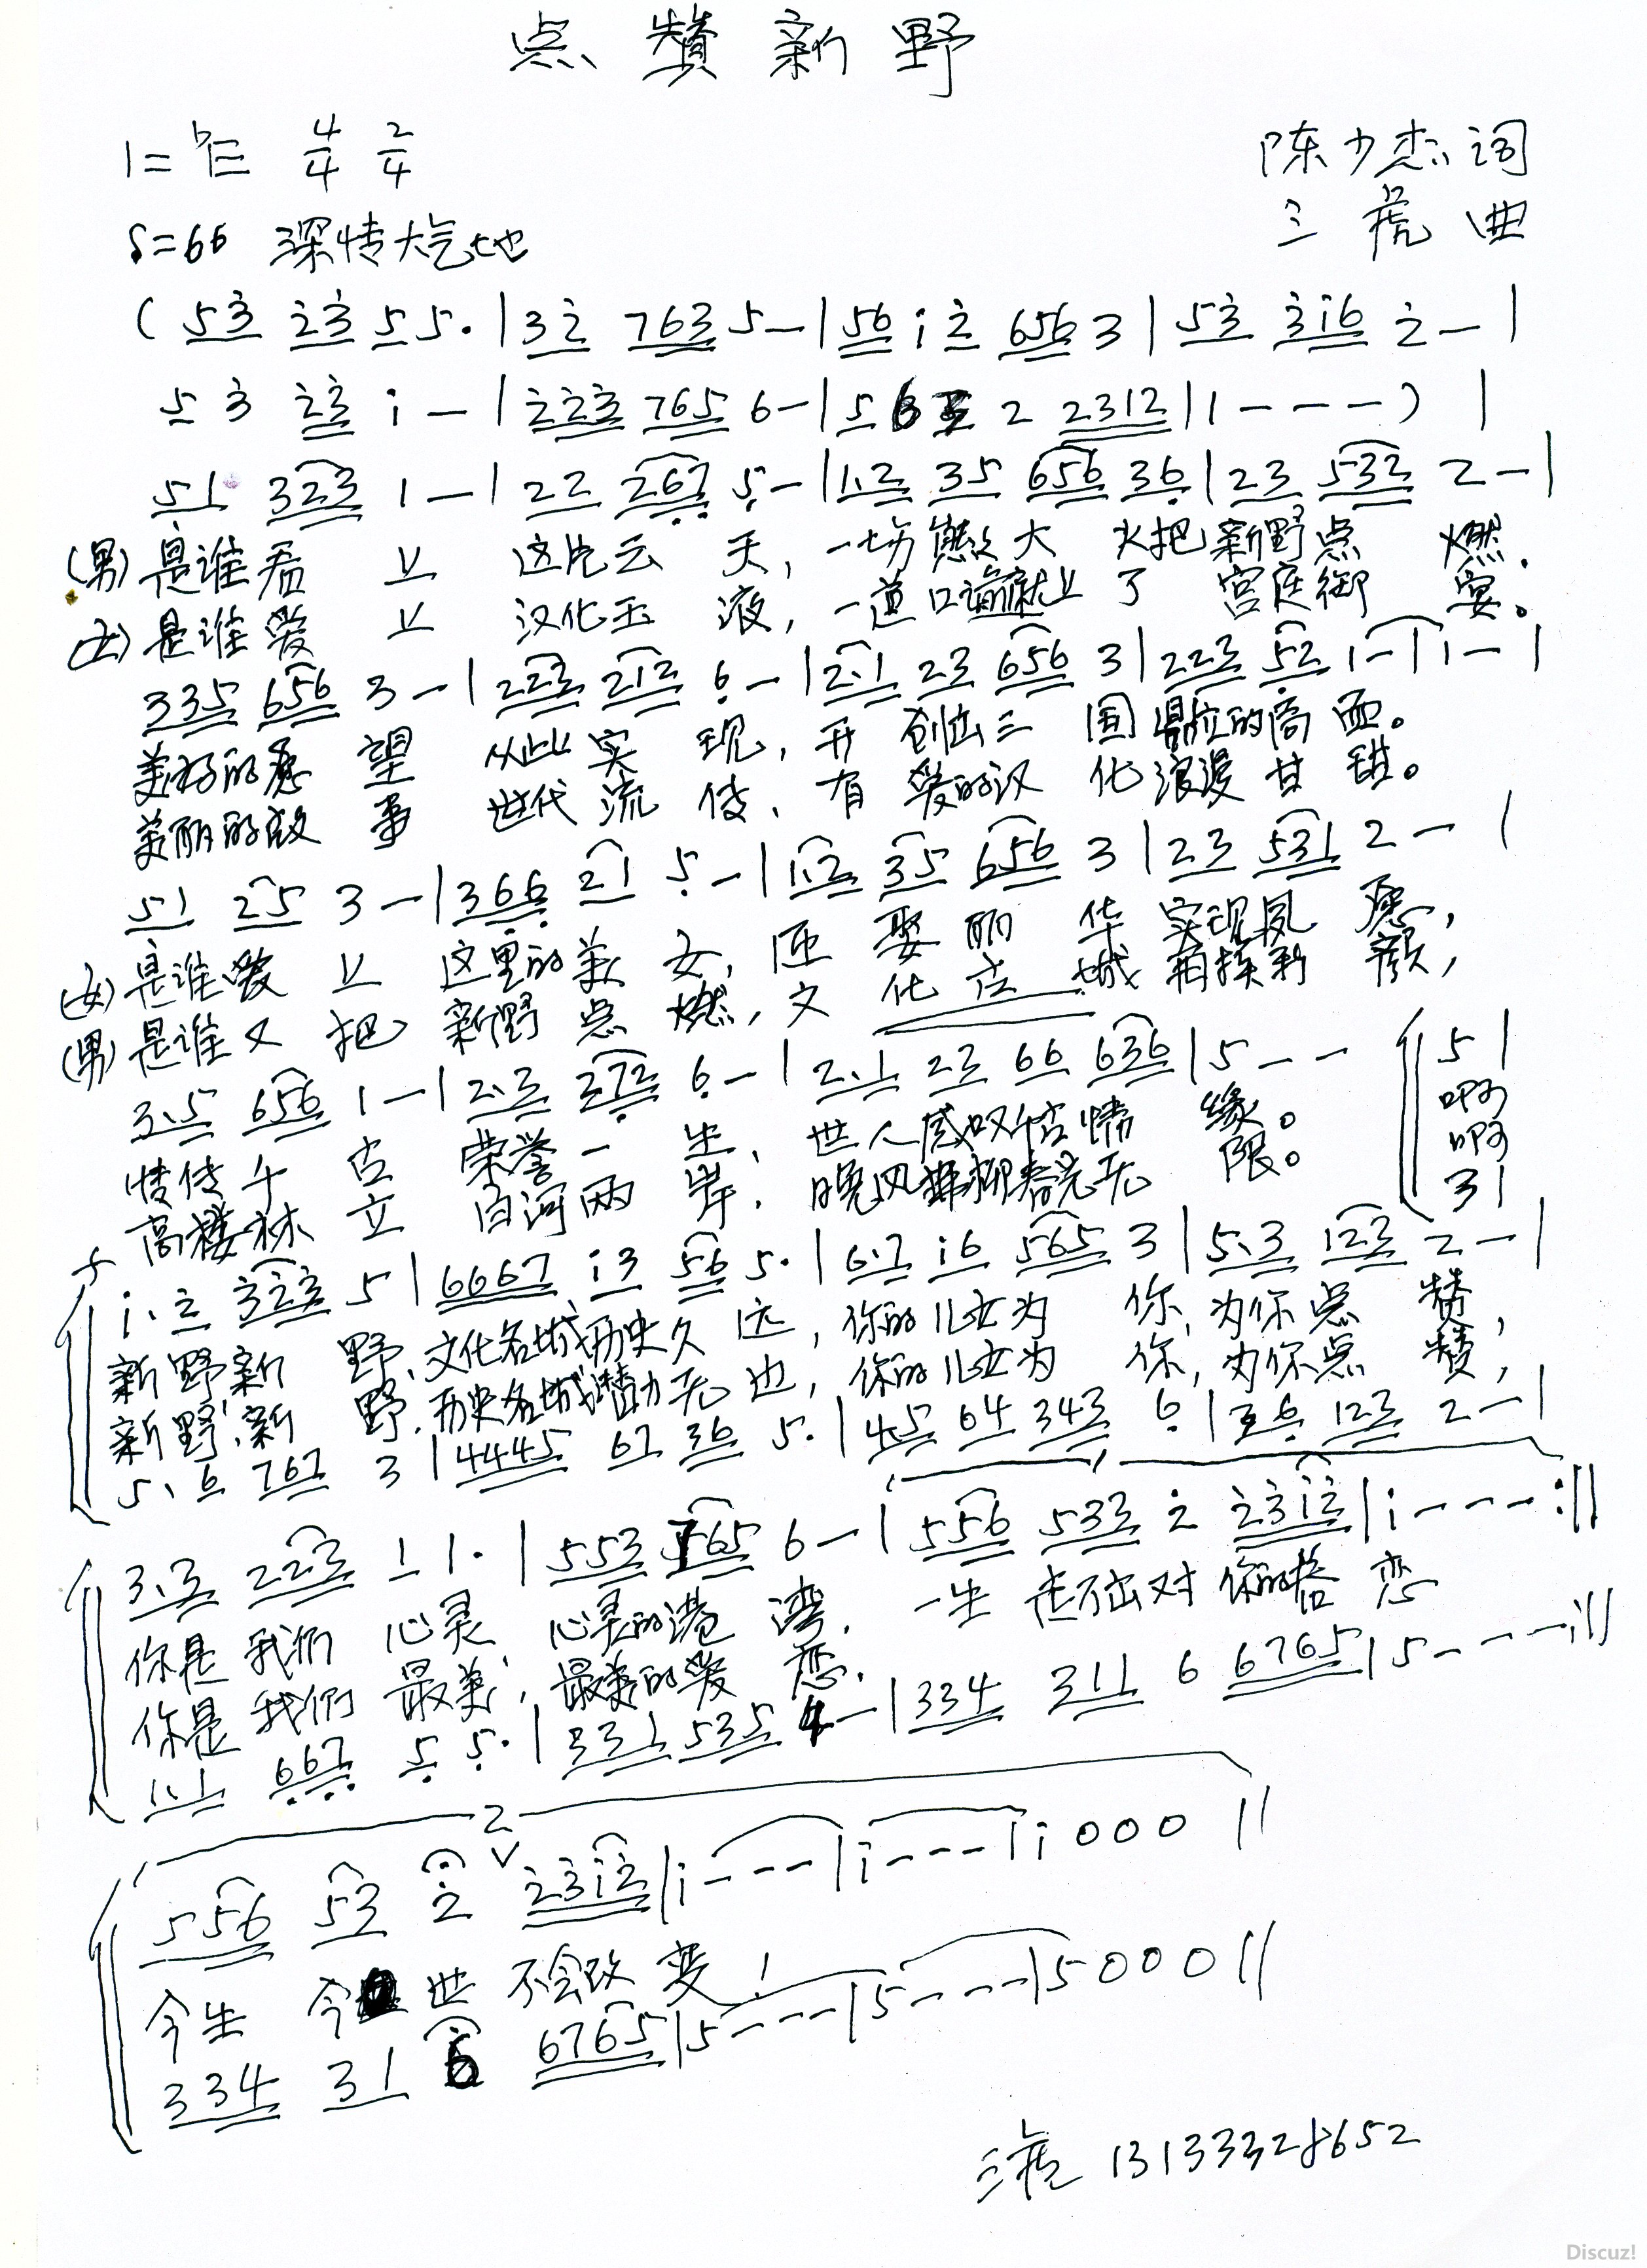 点赞新野
1=♭E 4/4 2/4
陈少杰词
=66 深情大气地
三虎曲
(53 23 55·|32 763 5-|56 i2 656 3|53 3i6 2-|
5 3 23 i-|223 765 6-|5 6 2 2312|1---)|
51 323 1-|22 267 5-|1·2 35 656 36|23 532 2-|
(男)是谁看上这片云天,一场大火把新野点燃。
(女)是谁爱上汉化玉液,一道口谕就上了宫庭御宴。
335 656 3-|223 212 6-|2·1 23 656 3|223 52 1-|1-|
美好的愿望从此实现,开创出三国鼎立的局面。
美丽的故事世代流传,有爱的汉化浪漫甘甜。
51 25 3-|366 21 5-|1·2 35 656 3|23 531 2-|
(女)是谁爱上这里的美女,娶丽华实现夙愿,
(男)是谁又把新野点燃,文化古城新颜,
3·5 656 1-|2·3 272 6-|2·1 23 66 636|5-- 51
情传千古荣誉一生,世人感叹情缘。啊
高楼林立白河两岸,晚风舞柳春光无限。啊
31
i·2 323 5|6667 i3 56 5·|6·7 i6 565 3|5·3 123 2-|
新野新野,文化名城历史久远,你的儿女为你,为你点赞,
新野,新野,历史名城无边,你的儿女为你,为你点赞,
5·6 767 3|4445 67 36 5·|4·5 64 343 6|36 123 2-|
1
3·3 223 1 1·|553 565 6-|556 533 2 23i2|i---:||
你是我们心灵,心灵的港湾,一生走不出对你的眷恋
你是我们最美,最美的爱恋,
1·1 667 5 5·|331 535 4-|334 311 6 6765|5---:||
2
556 53 2 23i2|i---|i---|i000||
今生今世不会改变!
334 31 6 6765|5---|5---|5000||
三虎 13133328652
Discuz!